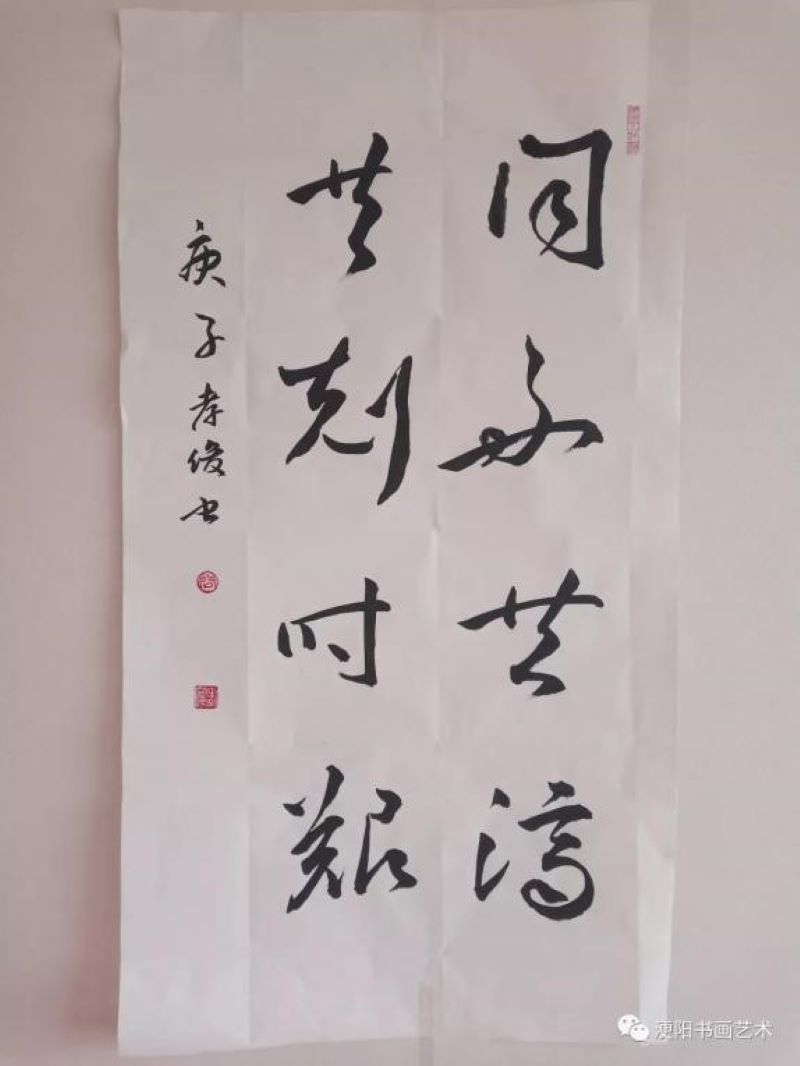 同舟共濟
共剋时艱
庚子孝俊书
溲阳书画艺术